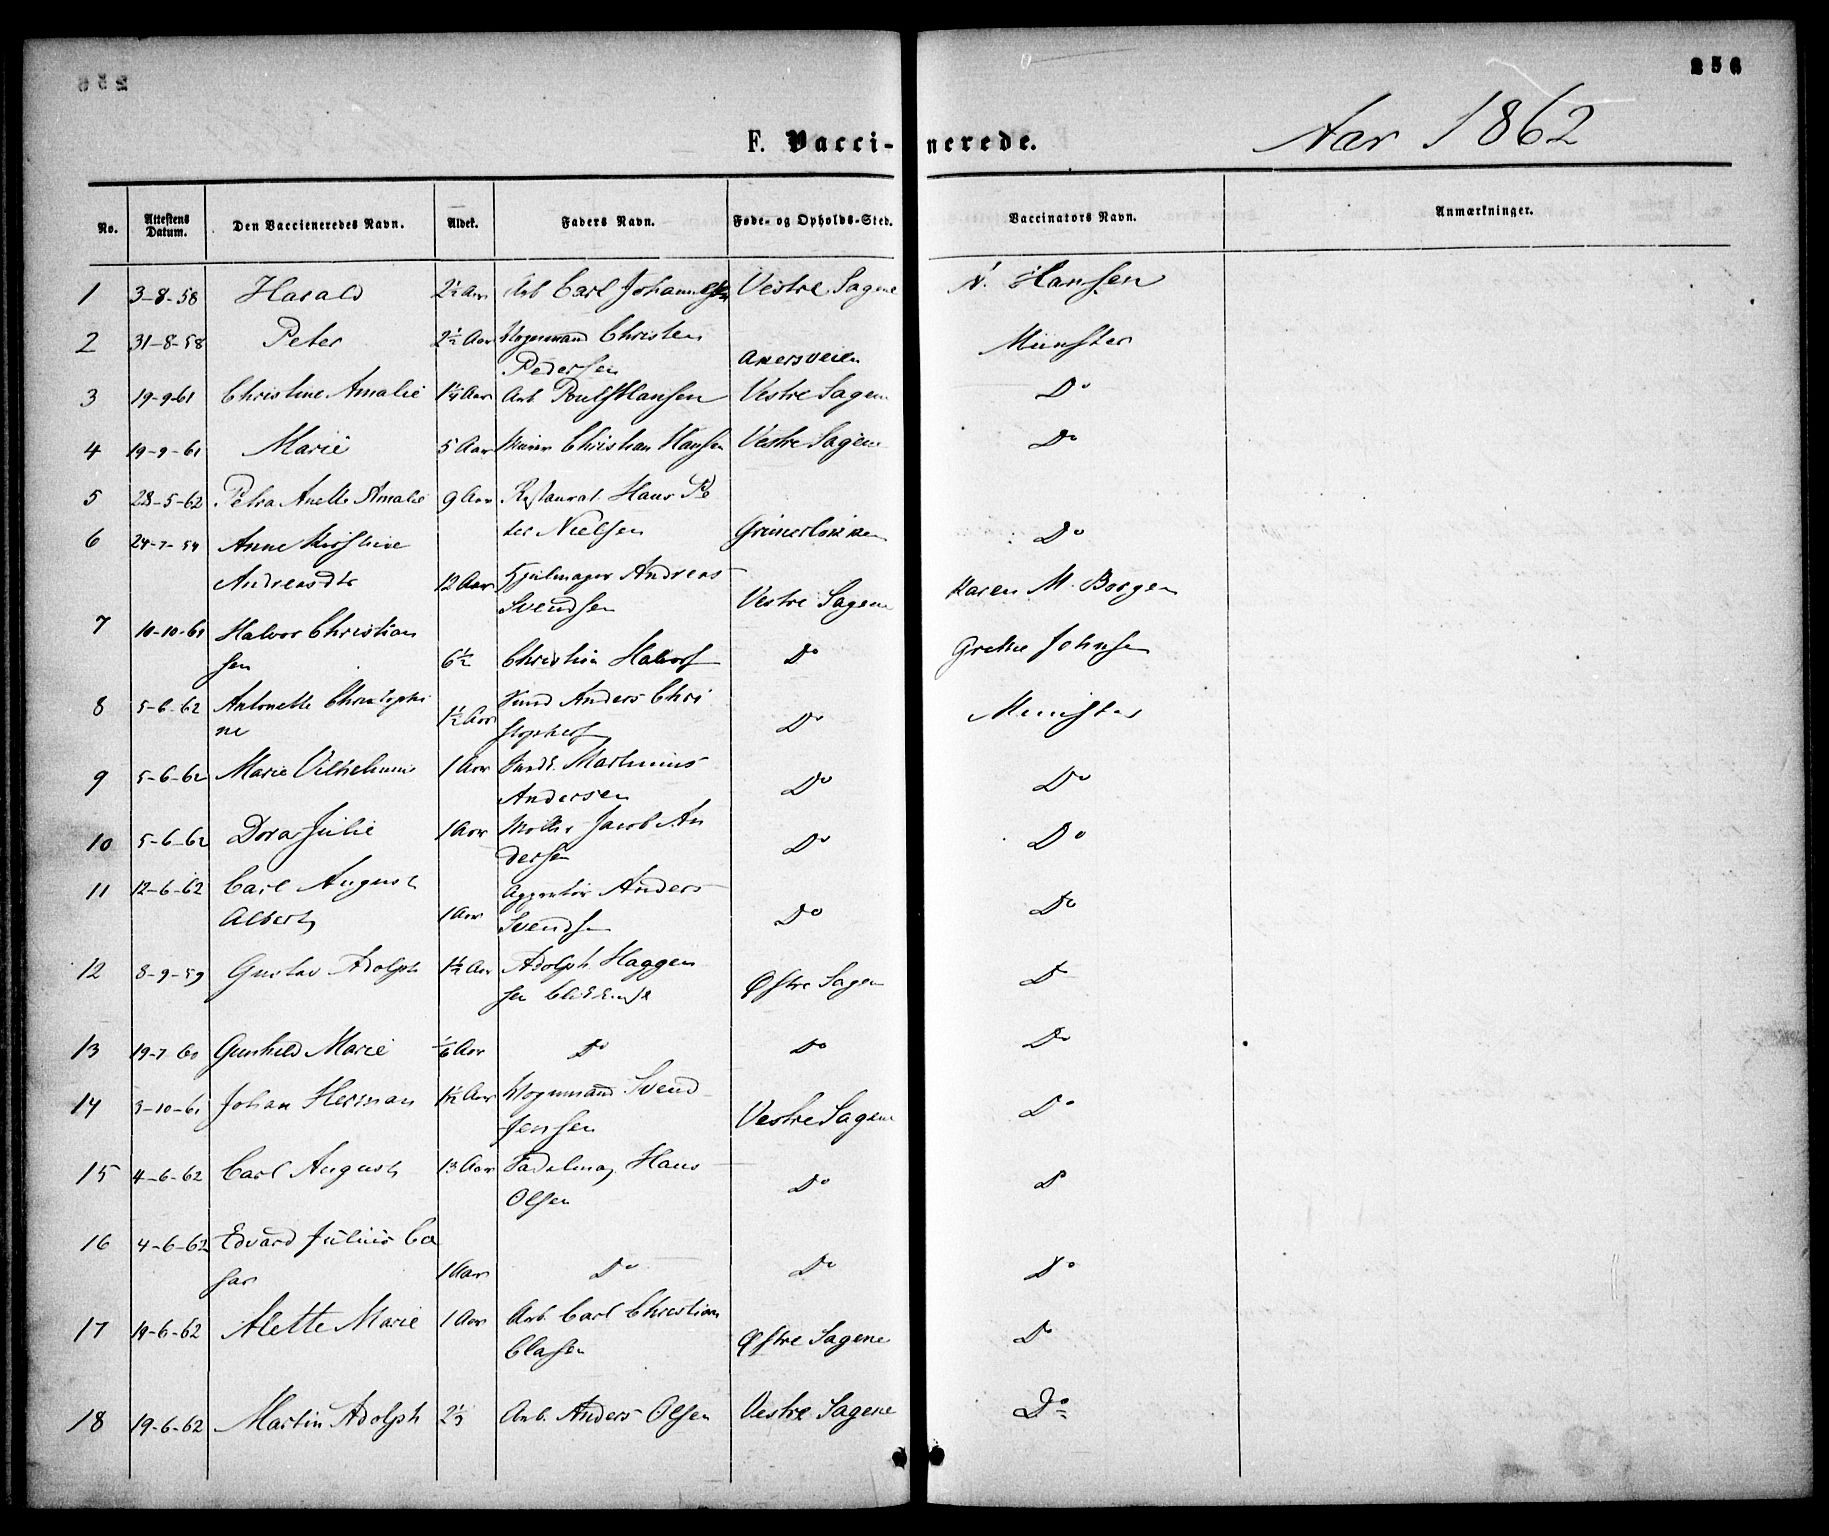 256
F. Vaccinerede.
Aar 1862
No. Attestens Datum. Den Vaccineredes Navn. Alder. Faders Navn. Føde- og Opholds-Sted. Vaccinators Navn. Anmærkninger.
1 3-8-58 Harald 2½ Aar Arb Carl Johannessen Vestre Sagene N. Hansen
2 31-8-58 Peter 2½ Aar Vognmand Christen Pedersen Akersveien Münster
3 19-9-61 Christine Amalie 1¼ Aar Arb. Hansen Vestre Sagene Do
4 19-9-61 Marie 5 Aar Murer Christian Hansen Vestre Sagene Do
5 28-5-62 Petra Anette Amalie 9 Aar Restaurat. Hans Pe
ter Nielsen Grünerløkken Do
6 24-7-54 Anne Kirstine
Andreasdtr 12 Aar Hjulmager Andreas
Svendsen Vestre Sagene Karen M. Borgen
7 10-10-61 Halvor Christian
sen 6½ Christian Halvors Do Grethe Johnsen
8 5-6-62 Antonette Christophi
ne 1½ Aar Anders Chri
stophers Do Münster
9 5-6-62 Marie Vilhelmine 1 Aar Martinius
Andersen Do Do
10 5-6-62 Dora Julie 1 Aar Møller Jacob An
dersen Do Do
11 12-6-62 Carl August
Albert 1 Aar Anders
Svendsen Do Do
12 8-9-59 Gustav Adolph 1½ Aar Adolph Haggen
sen Østre Sagen Do
13 19-7-60 Gunhild Marie ½ Aar Do Do Do
14 3-10-61 Johan Herman 1½ Aar Vognmand Svend
Jensen Vestre Sagene Do
15 4-6-62 Carl August 13 Aar Sadelmag. Hans
Olsen Do Do
16 4-6-62 Edvard Julius Cæ
sar 1 Aar Do Do Do
17 19-6-62 Alette Marie 1 Aar Arb. Carl Christian
Clasen Østre Sagene Do
18 19-6-62 Martin Adolph 2⅓ Arb. Anders Olsen Vestre Sagene Do